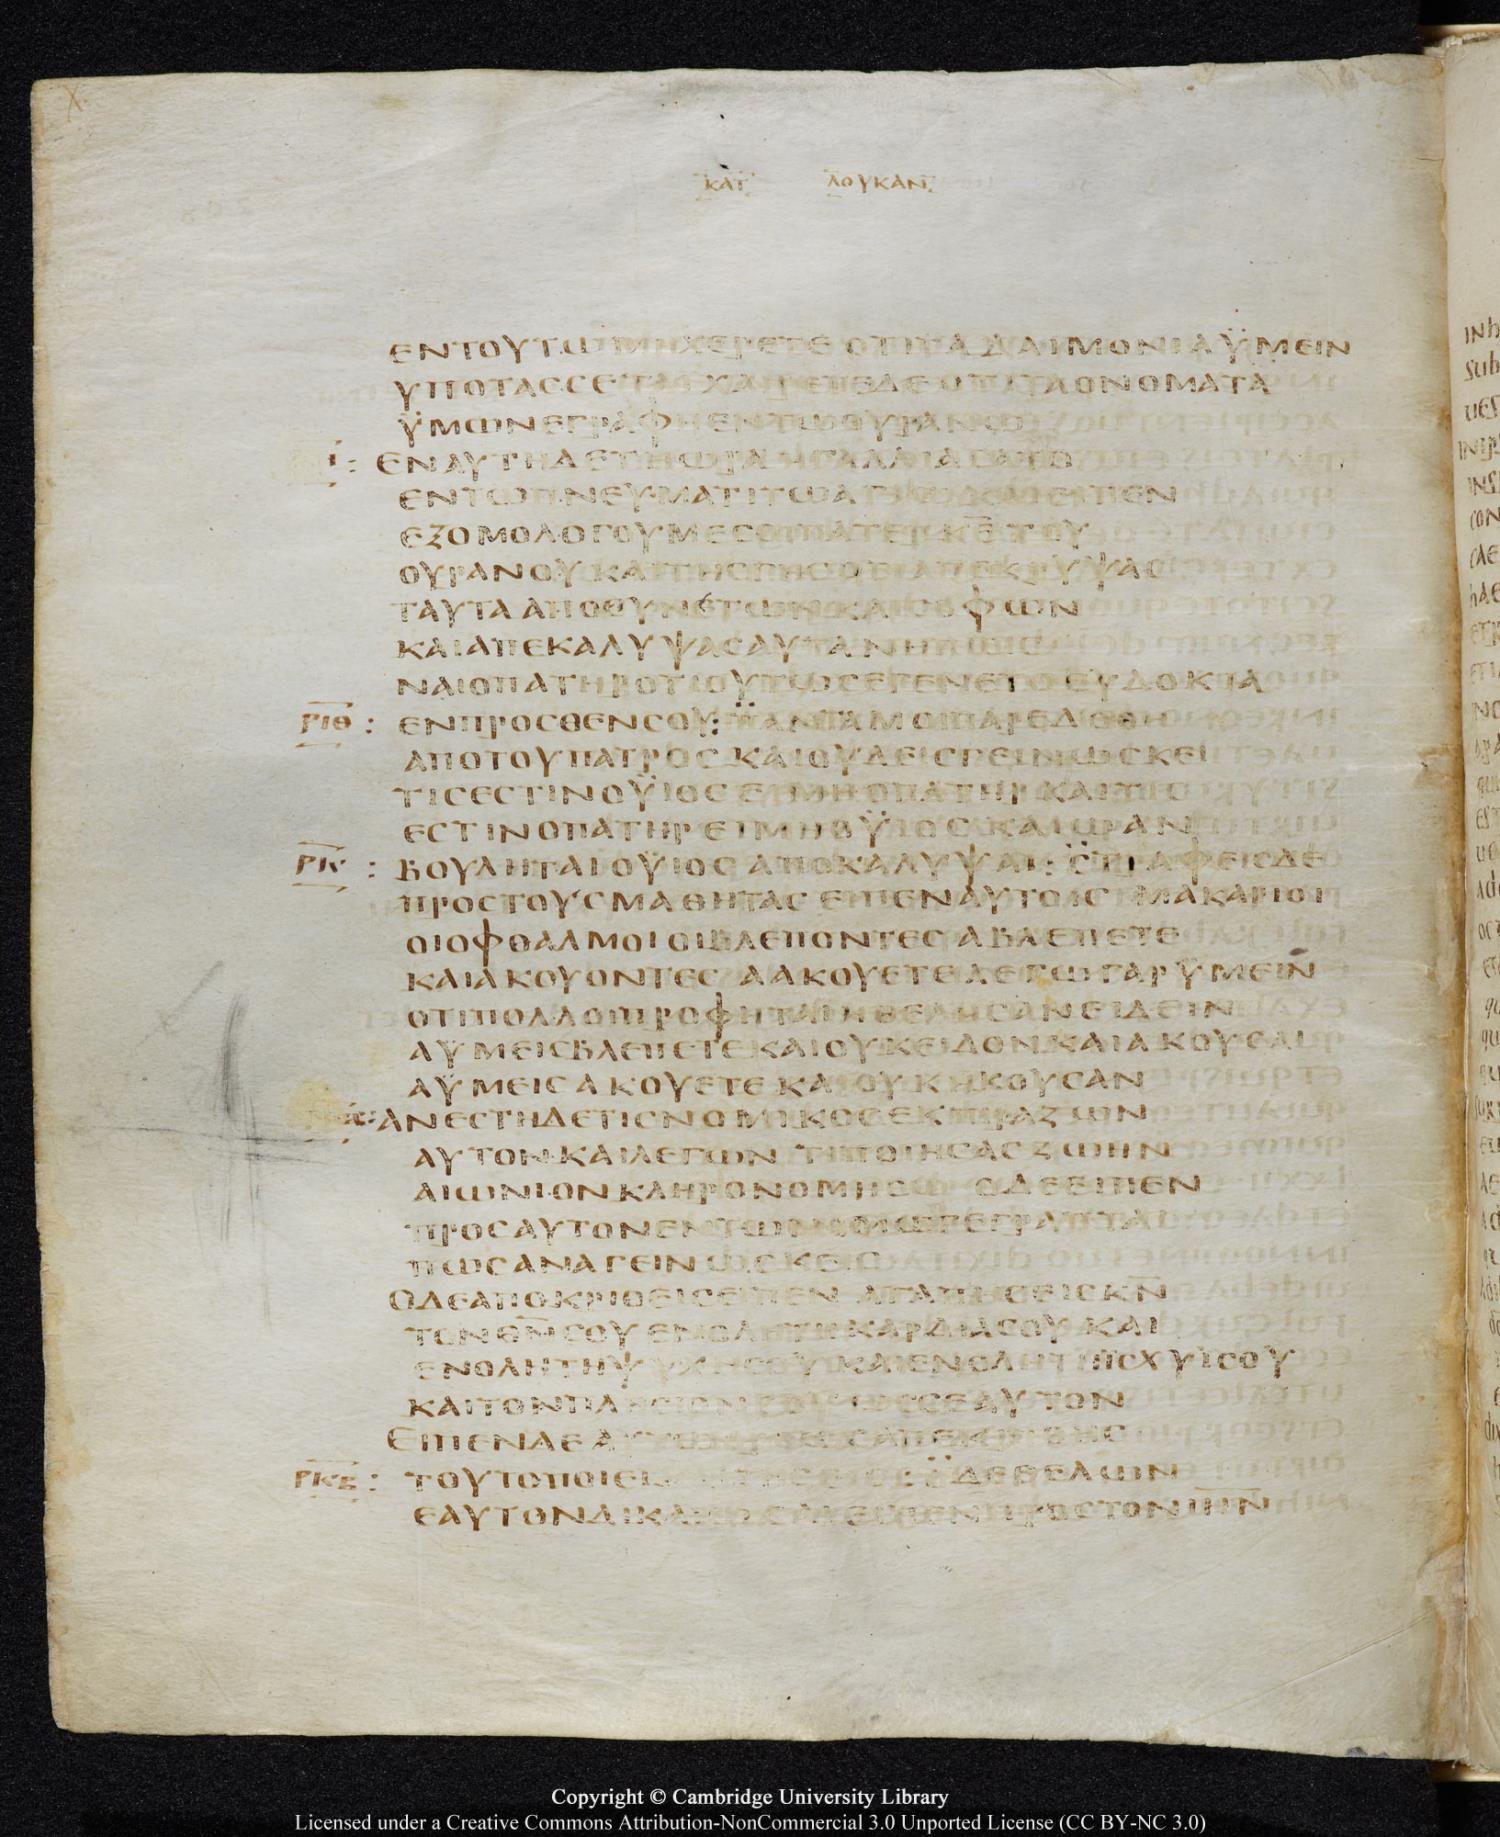 ΚΑΤ ΛΟΥΚΑΝ
ΕΝΤΟΥΤΩ ΜΗ ΧΕΡΕΤΕ ΟΤΙ ΤΑ ΔΑΙΜΟΝΙΑ ΫΜΕΙΝ
ΥΠΟΤΑΣΣΕΤΑΙ ΧΑΙΡΕΤΕ ΔΕ ΟΤΙ ΤΑ ΟΝΟΜΑΤΑ
ΫΜΩΝ ΕΓΡΑΦΗ ΕΝ ΤΩ ΟΥΡΑΝΩ
ΕΝ ΑΥΤΗ ΔΕ ΤΗ ΩΡΑ ΗΓΑΛΛΙΑΣΑΤΟ
ΕΝ ΤΩ ΠΝΕΥΜΑΤΙ ΤΩ ΑΓΙΩ ΕΙΠΕΝ
ΕΞΟΜΟΛΟΓΟΥΜΕ ΣΟΙ ΠΑΤΕΡ ΚΕ ΤΟΥ
ΟΥΡΑΝΟΥ ΚΑΙ ΤΗΣ ΓΗΣ ΟΤΙ ΑΠΕΚΡΥΨΑΣ
ΤΑΥΤΑ ΑΠΟ ΣΥΝΕΤΩΝ ΚΑΙ ΣΟΦΩΝ
ΚΑΙ ΑΠΕΚΑΛΥΨΑΣ ΑΥΤΑ ΝΗΠΙΟΙΣ
ΝΑΙ Ο ΠΑΤΗΡ ΟΤΙ ΟΥΤΩΣ ΕΓΕΝΕΤΟ ΕΥΔΟΚΙΑ
ΡΙΘ : ΕΝΠΡΟΣΘΕΝ ΣΟΥ : ΠΑΝΤΑ ΜΟΙ ΠΑΡΕΔΟΘΗ
ΑΠΟ ΤΟΥ ΠΑΤΡΟΣ ΚΑΙ ΟΥΔΕΙΣ ΓΕΙΝΩΣΚΕΙ
ΤΙΣ ΕΣΤΙΝ Ο ΫΙΟΣ ΕΙ ΜΗ Ο ΠΑΤΗΡ ΚΑΙ ΤΙΣ
ΕΣΤΙΝ Ο ΠΑΤΗΡ ΕΙ ΜΗ Ο ΫΙΟΣ ΚΑΙ Ω ΑΝ
ΡΚ : ΒΟΥΛΗΤΑΙ Ο ΫΙΟΣ ΑΠΟΚΑΛΥΨΑΙ : ΣΤΡΑΦΕΙΣ ΔΕ
ΠΡΟΣ ΤΟΥΣ ΜΑΘΗΤΑΣ ΕΙΠΕΝ ΑΥΤΟΙΣ ΜΑΚΑΡΙΟΙ
ΟΙ ΟΦΘΑΛΜΟΙ ΟΙ ΒΛΕΠΟΝΤΕΣ Α ΒΛΕΠΕΤΕ
ΚΑΙ ΑΚΟΥΟΝΤΕΣ Α ΑΚΟΥΕΤΕ ΛΕΓΩ ΓΑΡ ΫΜΕΙΝ
ΟΤΙ ΠΟΛΛΟΙ ΠΡΟΦΗΤΑΙ ΗΘΕΛΗΣΑΝ ΕΙΔΕΙΝ
Α ΫΜΕΙΣ ΒΛΕΠΕΤΕ ΚΑΙ ΟΥΚ ΕΙΔΟΝ ΚΑΙ ΑΚΟΥΣΑΙ
Α ΫΜΕΙΣ ΑΚΟΥΕΤΕ ΚΑΙ ΟΥΚ ΗΚΟΥΣΑΝ
ΑΝΕΣΤΗ ΔΕ ΤΙΣ ΝΟΜΙΚΟΣ ΕΚΠΙΡΑΖΩΝ
ΑΥΤΟΝ ΚΑΙ ΛΕΓΩΝ ΤΙ ΠΟΙΗΣΑΣ ΖΩΗΝ
ΑΙΩΝΙΟΝ ΚΛΗΡΟΝΟΜΗΣΩ Ο ΔΕ ΕΙΠΕΝ
ΠΡΟΣ ΑΥΤΟΝ ΕΝ ΤΩ ΝΟΜΩ ΓΕΓΡΑΠΤΑΙ
ΠΩΣ ΑΝΑΓΕΙΝΩΣΚΕΙΣ
Ο ΔΕ ΑΠΟΚΡΙΘΕΙΣ ΕΙΠΕΝ ΑΓΑΠΗΣΕΙΣ ΚΝ
ΤΟΝ ΘΝ ΣΟΥ ΕΝ ΟΛΗ ΤΗ ΚΑΡΔΙΑ ΣΟΥ ΚΑΙ
ΕΝ ΟΛΗ ΤΗ ΨΥΧΗ ΣΟΥ ΚΑΙ ΕΝ ΟΛΗ ΤΗ ΙΣΧΥΙ ΣΟΥ
ΚΑΙ ΤΟΝ ΠΛΗΣΙΟΝ ΣΟΥ ΩΣ ΣΕΑΥΤΟΝ
ΕΙΠΕΝ ΔΕ ΑΥΤΩ ΟΡΘΩΣ ΑΠΕΚΡΙΘΗΣ
ΡΚΒ : ΤΟΥΤΟ ΠΟΙΕΙ ΚΑΙ ΖΗΣΕΙΣ : Ο ΔΕ ΘΕΛΩΝ
ΕΑΥΤΟΝ ΔΙΚΑΙΩΣΑΙ ΕΙΠΕΝ ΠΡΟΣ ΤΟΝ ΙΗΝ